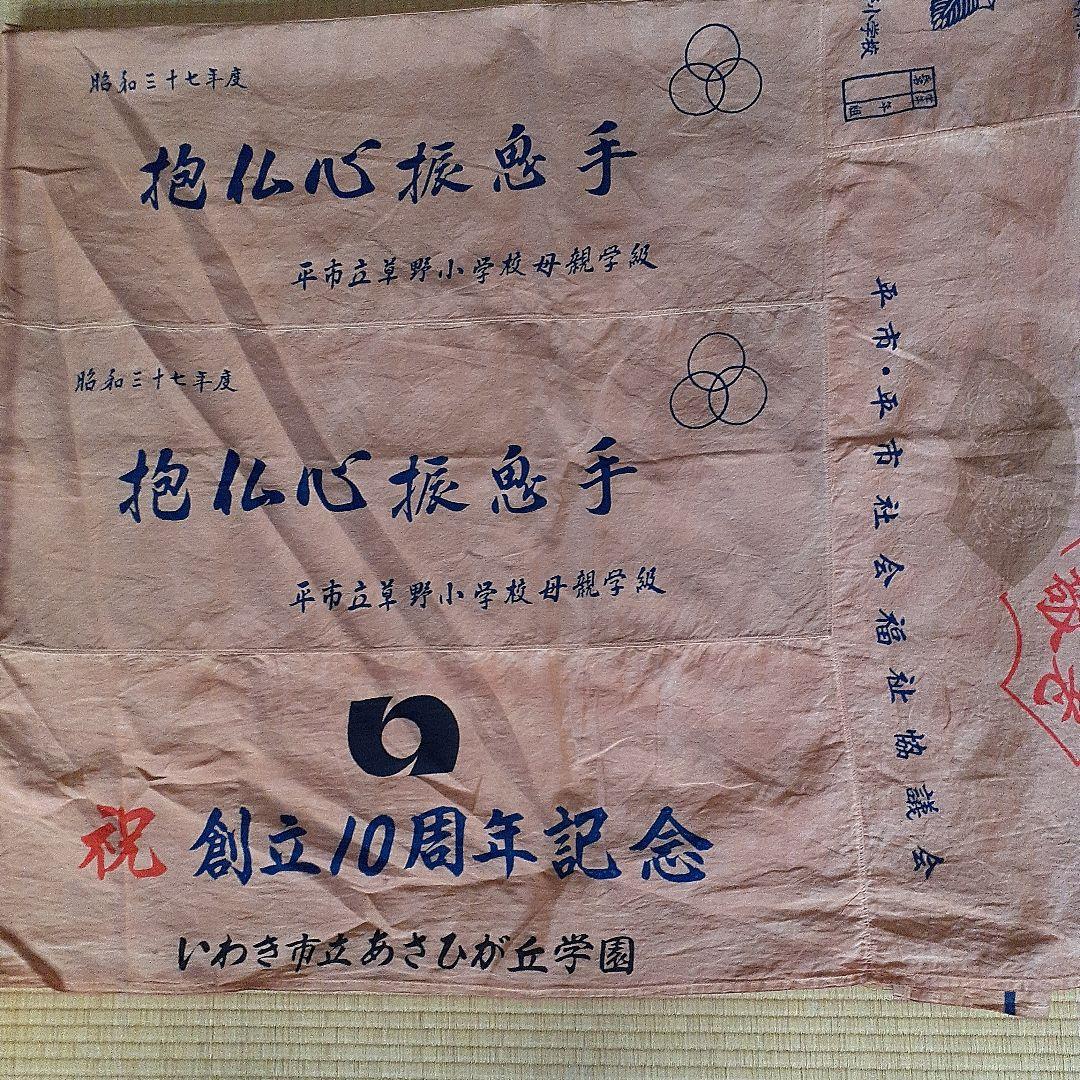 昭和三十七年度
抱仏心振鬼手
平市立草野小学校母親学級
昭和三十七年度
抱仏心振鬼手
平市立草野小学校母親学級
祝 創立10周年記念
いわき市立あさひが丘学園
小学校
年 組
平市・平市社会福祉協議会
敬老